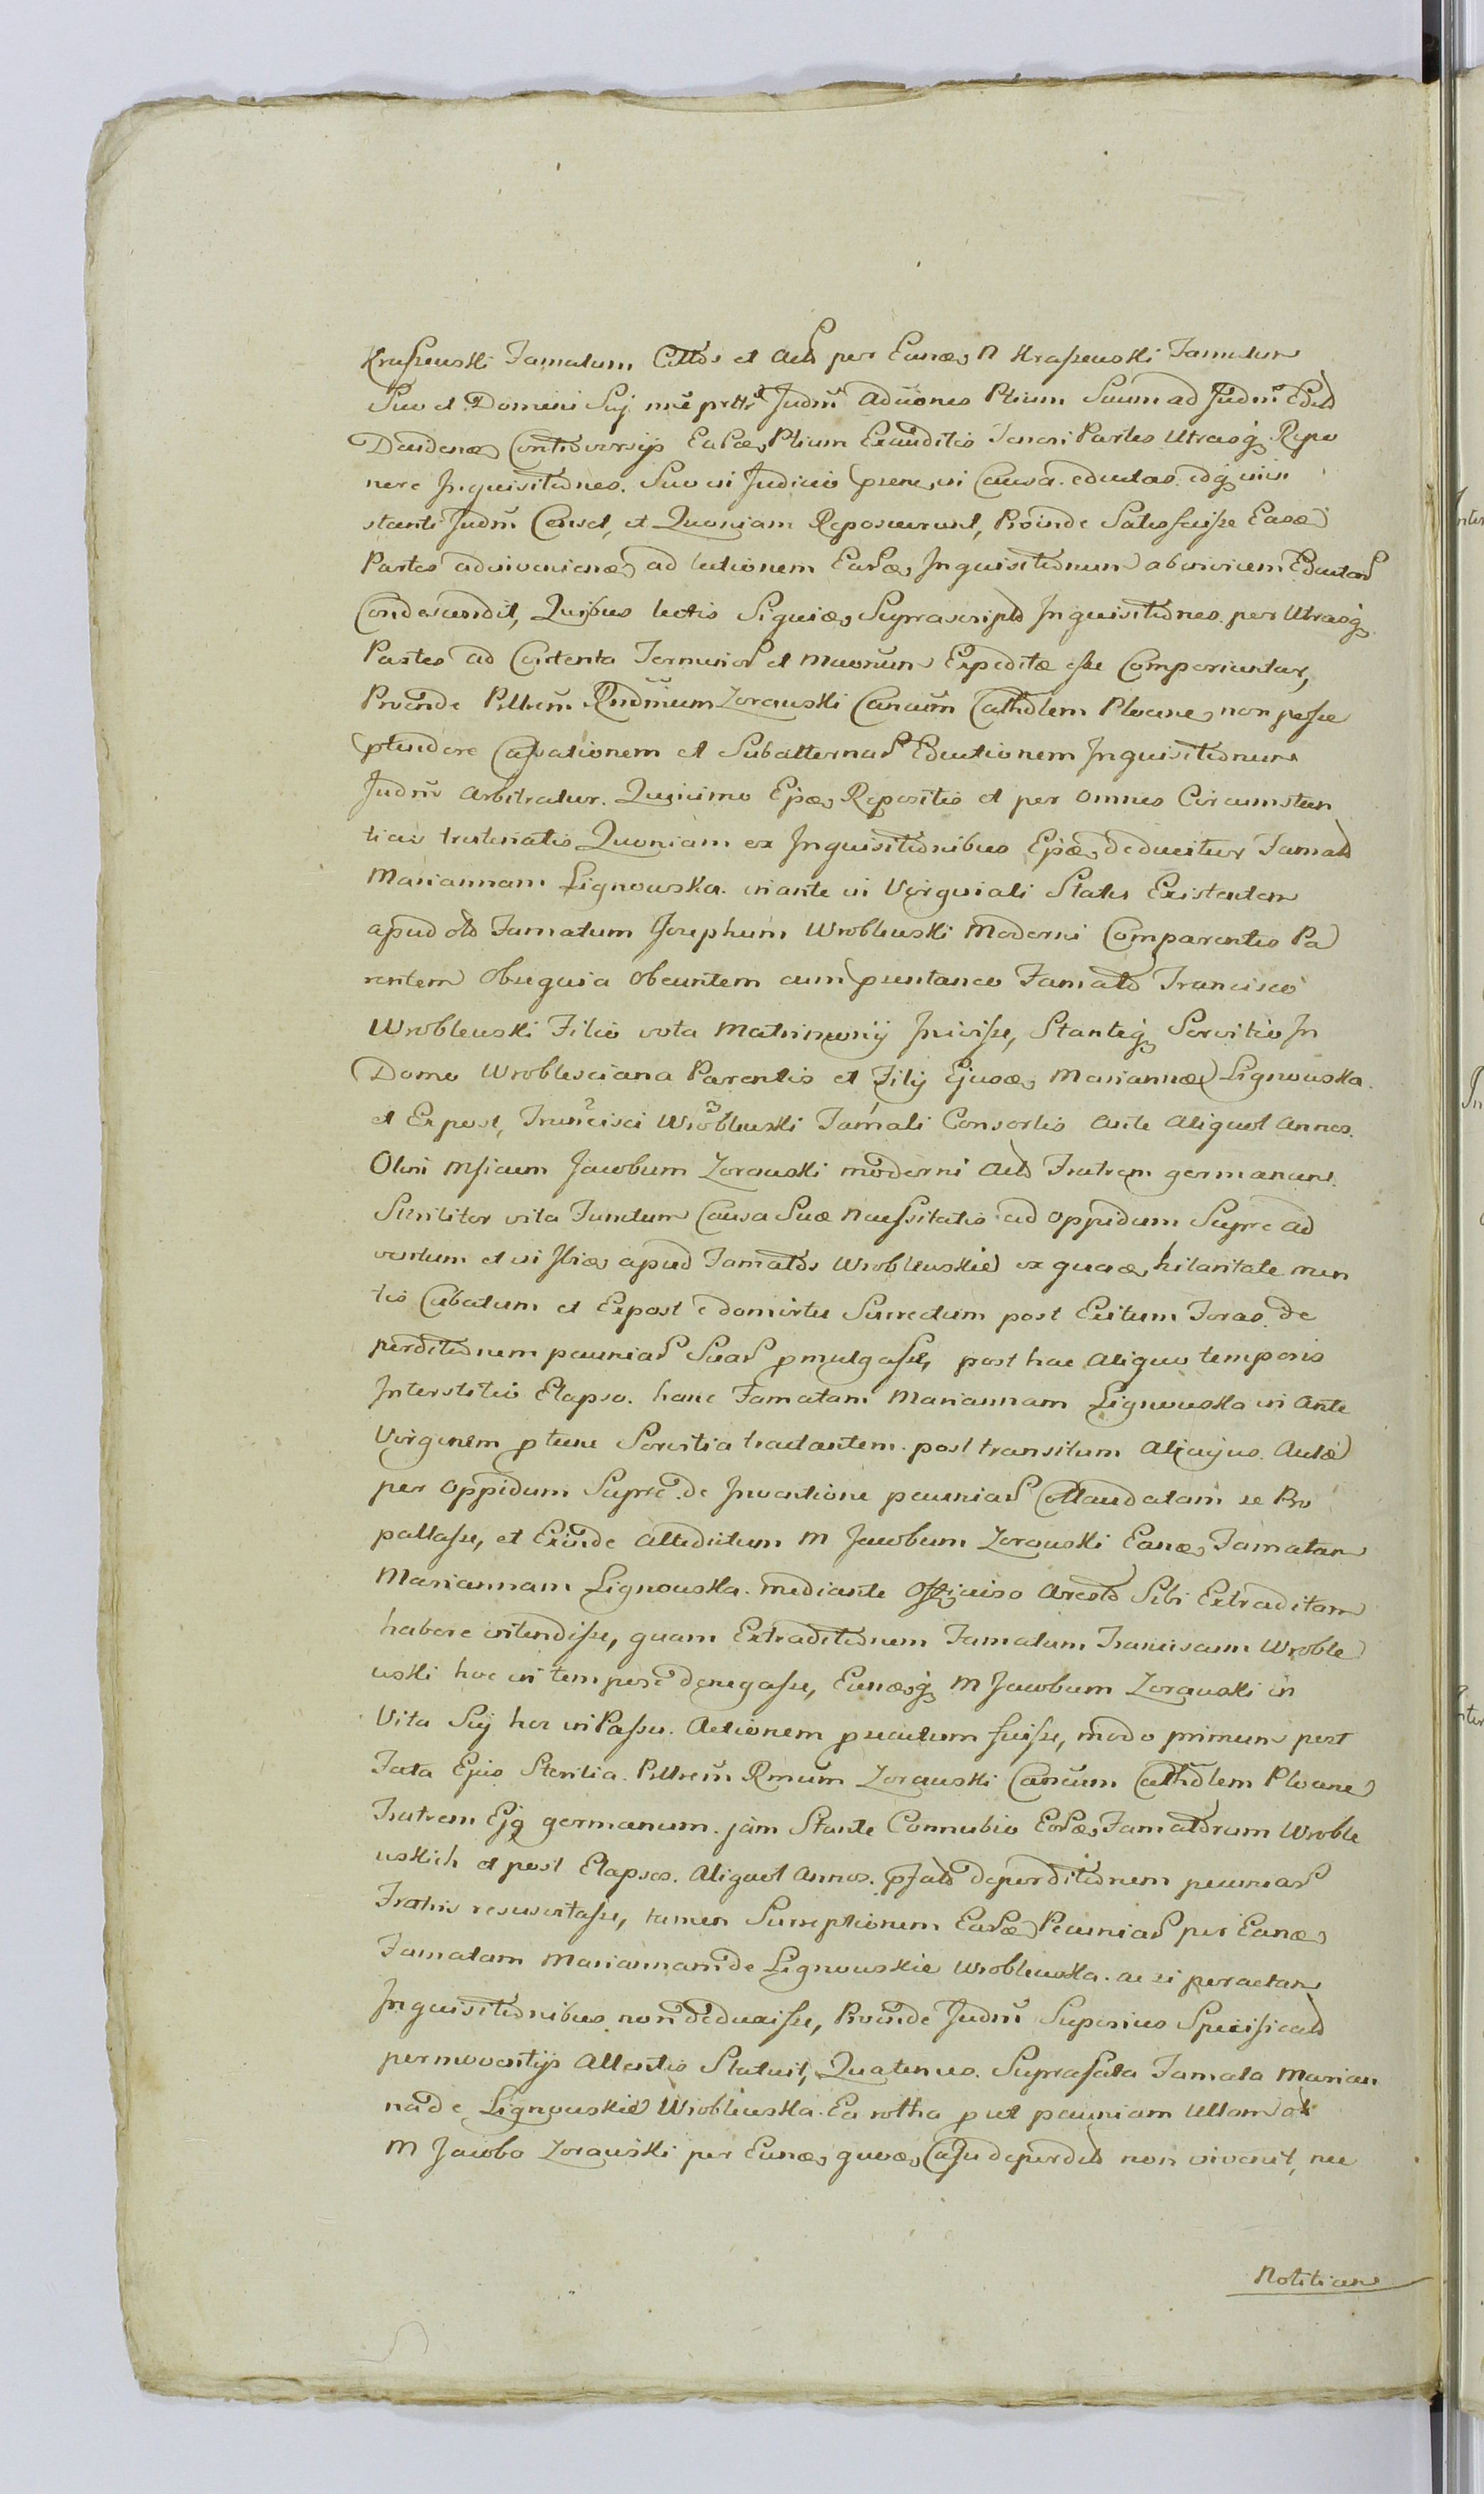 Kraszewski Famatum Cittūs et Act per Eunđ N Kraszewski Famulum
Suo et Domini Sŭj nīe prtti Judm̄ adūones Ptium Suum ad Judm̄ Edŭt
Dandenđ Controversijs Earđ Ptium Exauditis Teneri Partes Utrasq̨ Repo
nere Inquisitiones. Suo in Judicio p̄sene, in Causa. eductas. idq̨ in in
stanti Judm̄ Censet, et Quoniam Reposuerunt, Proinde Satisfecisse Easđ
Partes ad lectionem Earđ Inquisitionum ab invicem Eductar̄
Condescendit, Quibus lectis Siquidđ Suprascriptđ Inquisitiones. per Utrasq̨
Partes ad Contenta Terminor̄ et Expeditæ esse Comperiuntur,
Proinde Pttrem̄ Rndm̄um Zorawski Canŭm Cathđlem Plocane, non posse
p̄tendere Cassationem et Subalternar̄ Eductionem Inquisitionum
Judm̄ Arbitratur. Quinimo Ejsđ Repositis et per omnes Circumstan
tias trutinatis Quoniam ex Inquisitionibus Ejsđ deducitur Famatđ
Mariannam Lignowska. in ante in Virginali Statu Existentem
apud olđ Famatum Josephum Wroblewski Moderni Comparentis Pa
rentem Obsequia Obeuntem cum p̄sentaneo Famatđ Francisco
Wroblewski Filio vota Matrimonij Inivisse, Stanteq̨ Servitio In
Domo Wroblesciana Parentis et Filij Ejusđ Mariannæ Lignowska.
et Expost, Francisci Wroblewski Famati Consortis Ante Aliquot Annos.
Olim Mficum Jacobum Zorawski moderni Actđ Fratrem germanum.
Similiter vita Functum Causa Suæ Necessitatis ad Oppidum Sierpc ad
ventum et in Ibiđ apud Famatđs Wroblewskie ex quađ hilaritate men
tis Cubatum et Expost e domirtu Surrectum post Exitum Foras de
perditionem pecuniar̄ Suar̄ p̄mulgasse, post hac Aliquo temporis
Interstitio Elapso. hanc Famatam Mariannam Lignowska in Ante
Virginem p̄ tunc Servitia tractantem. post transitum Alicujus. Aulæ
per Oppidum Sierpc. de Inventione pecuniar̄ Collaudatam se Pro
pallasse, et Exinde Attedictum M Jacobum Zorawski Eanđ Famatam
Mariannam Lignowska. mediante Officioso Arestđ Sibi Extraditam
habere intendisse, quam Extraditionem Famatum Franciscum Wroble
wski hoc in tempore denegasse, Eunđq̨ M Jacobum Zorawski in
Vita Sŭj hoc in Passu. Actionem p̄secutum fuisse, modo primum post
Fata Ejus Sterilia. Pttrem̄ Rmŭm Zorawski Canŭm Cathđlem Plocane
Fratrem Ejq̨ germanum. jam Stante Connubio Eorđ Famatorum Wroble
wskich et post Elapsos. Aliquot Annos. p̄fatđ deperditionem pecuniar̄
Fratris resuscitasse, tamen Surreptionem Earđ Pecuniar̄ per Eanđ
Famatam Mariannam de Lignowskie Wroblewska. ac si peractam
Inquisitionibus non deduxisse, Proinde Judm̄ Superius Specificatđ
permoventijs Attentis Statuit, Quatenus. Suprafata Famata Marian
na de Lignowskie Wroblewska. Ea rotha p ut pecuniam Ullam ab
M Jacobo Zorawski per Eunđ quođ Casu deperditđ non invenit, nec
Notitiam